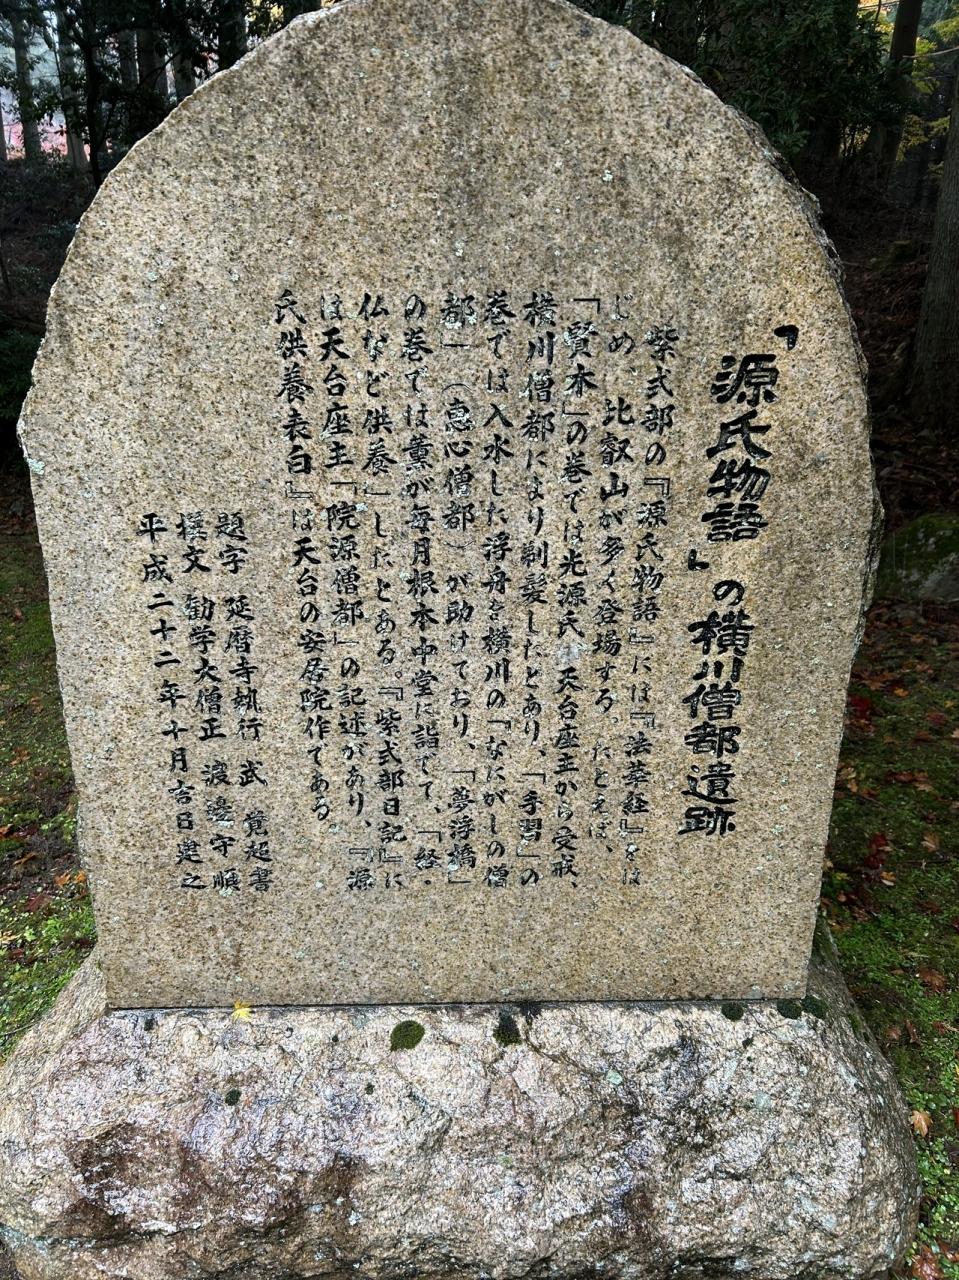 「源氏物語」の横川僧都遺跡
紫式部の『源氏物語』には『法華経』をは
じめ、比叡山が多く登場する。たとえば、
「賢木」の巻では光源氏が天台座主から受戒、
横川僧都により剃髪したとあり、「手習」の
巻では入水した浮舟を横川の「なにがしの僧
都」（恵心僧都）が助けており、「夢浮橋」
の巻では薫が毎月根本中堂に詣でて、「経・
仏など供養」したとある。『紫式部日記』に
は天台座主「院源僧都」の記述があり、『源
氏供養表白』は天台の安居院作である
題字 延暦寺執行 武 覚超書
撰文 勧学大僧正 渡邊守順
平成二十二年十月吉日建之